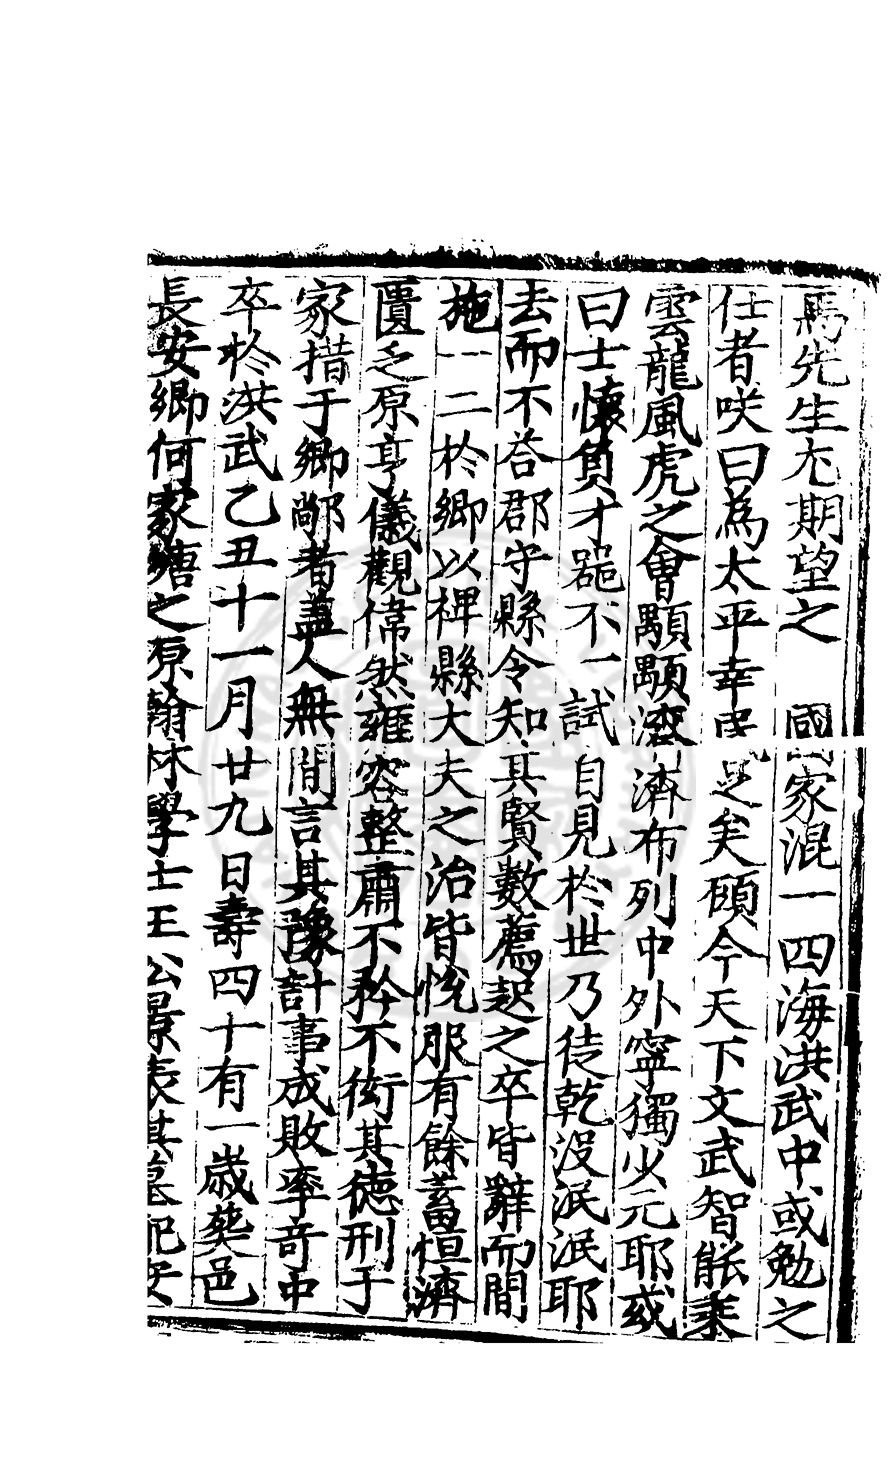 馬先生尤期望之　國家混一四海洪武中或勉之
仕者咲曰為太平幸民足矣顧今天下文武智能乘
雲龍風虎之會顒顒濟濟布列中外寧獨少元耶或
曰士懷負才器不一試自見扵世乃徒乾没泯泯耶
去而不荅郡守縣令知其賢數薦起之卒皆辭而間
施一二扵鄉以裨縣大夫之治皆悅服有餘蓄恒濟
匱乏原亨儀觀偉然雍容整肅不矜不衒其德刑于
家措于鄉鄰者蓋人無間言其豫計事成敗率奇中
卒扵洪武乙丑十一月廿九日壽四十有一歲葬邑
長安鄉何家塘之原翰林學士王公景表其墓配